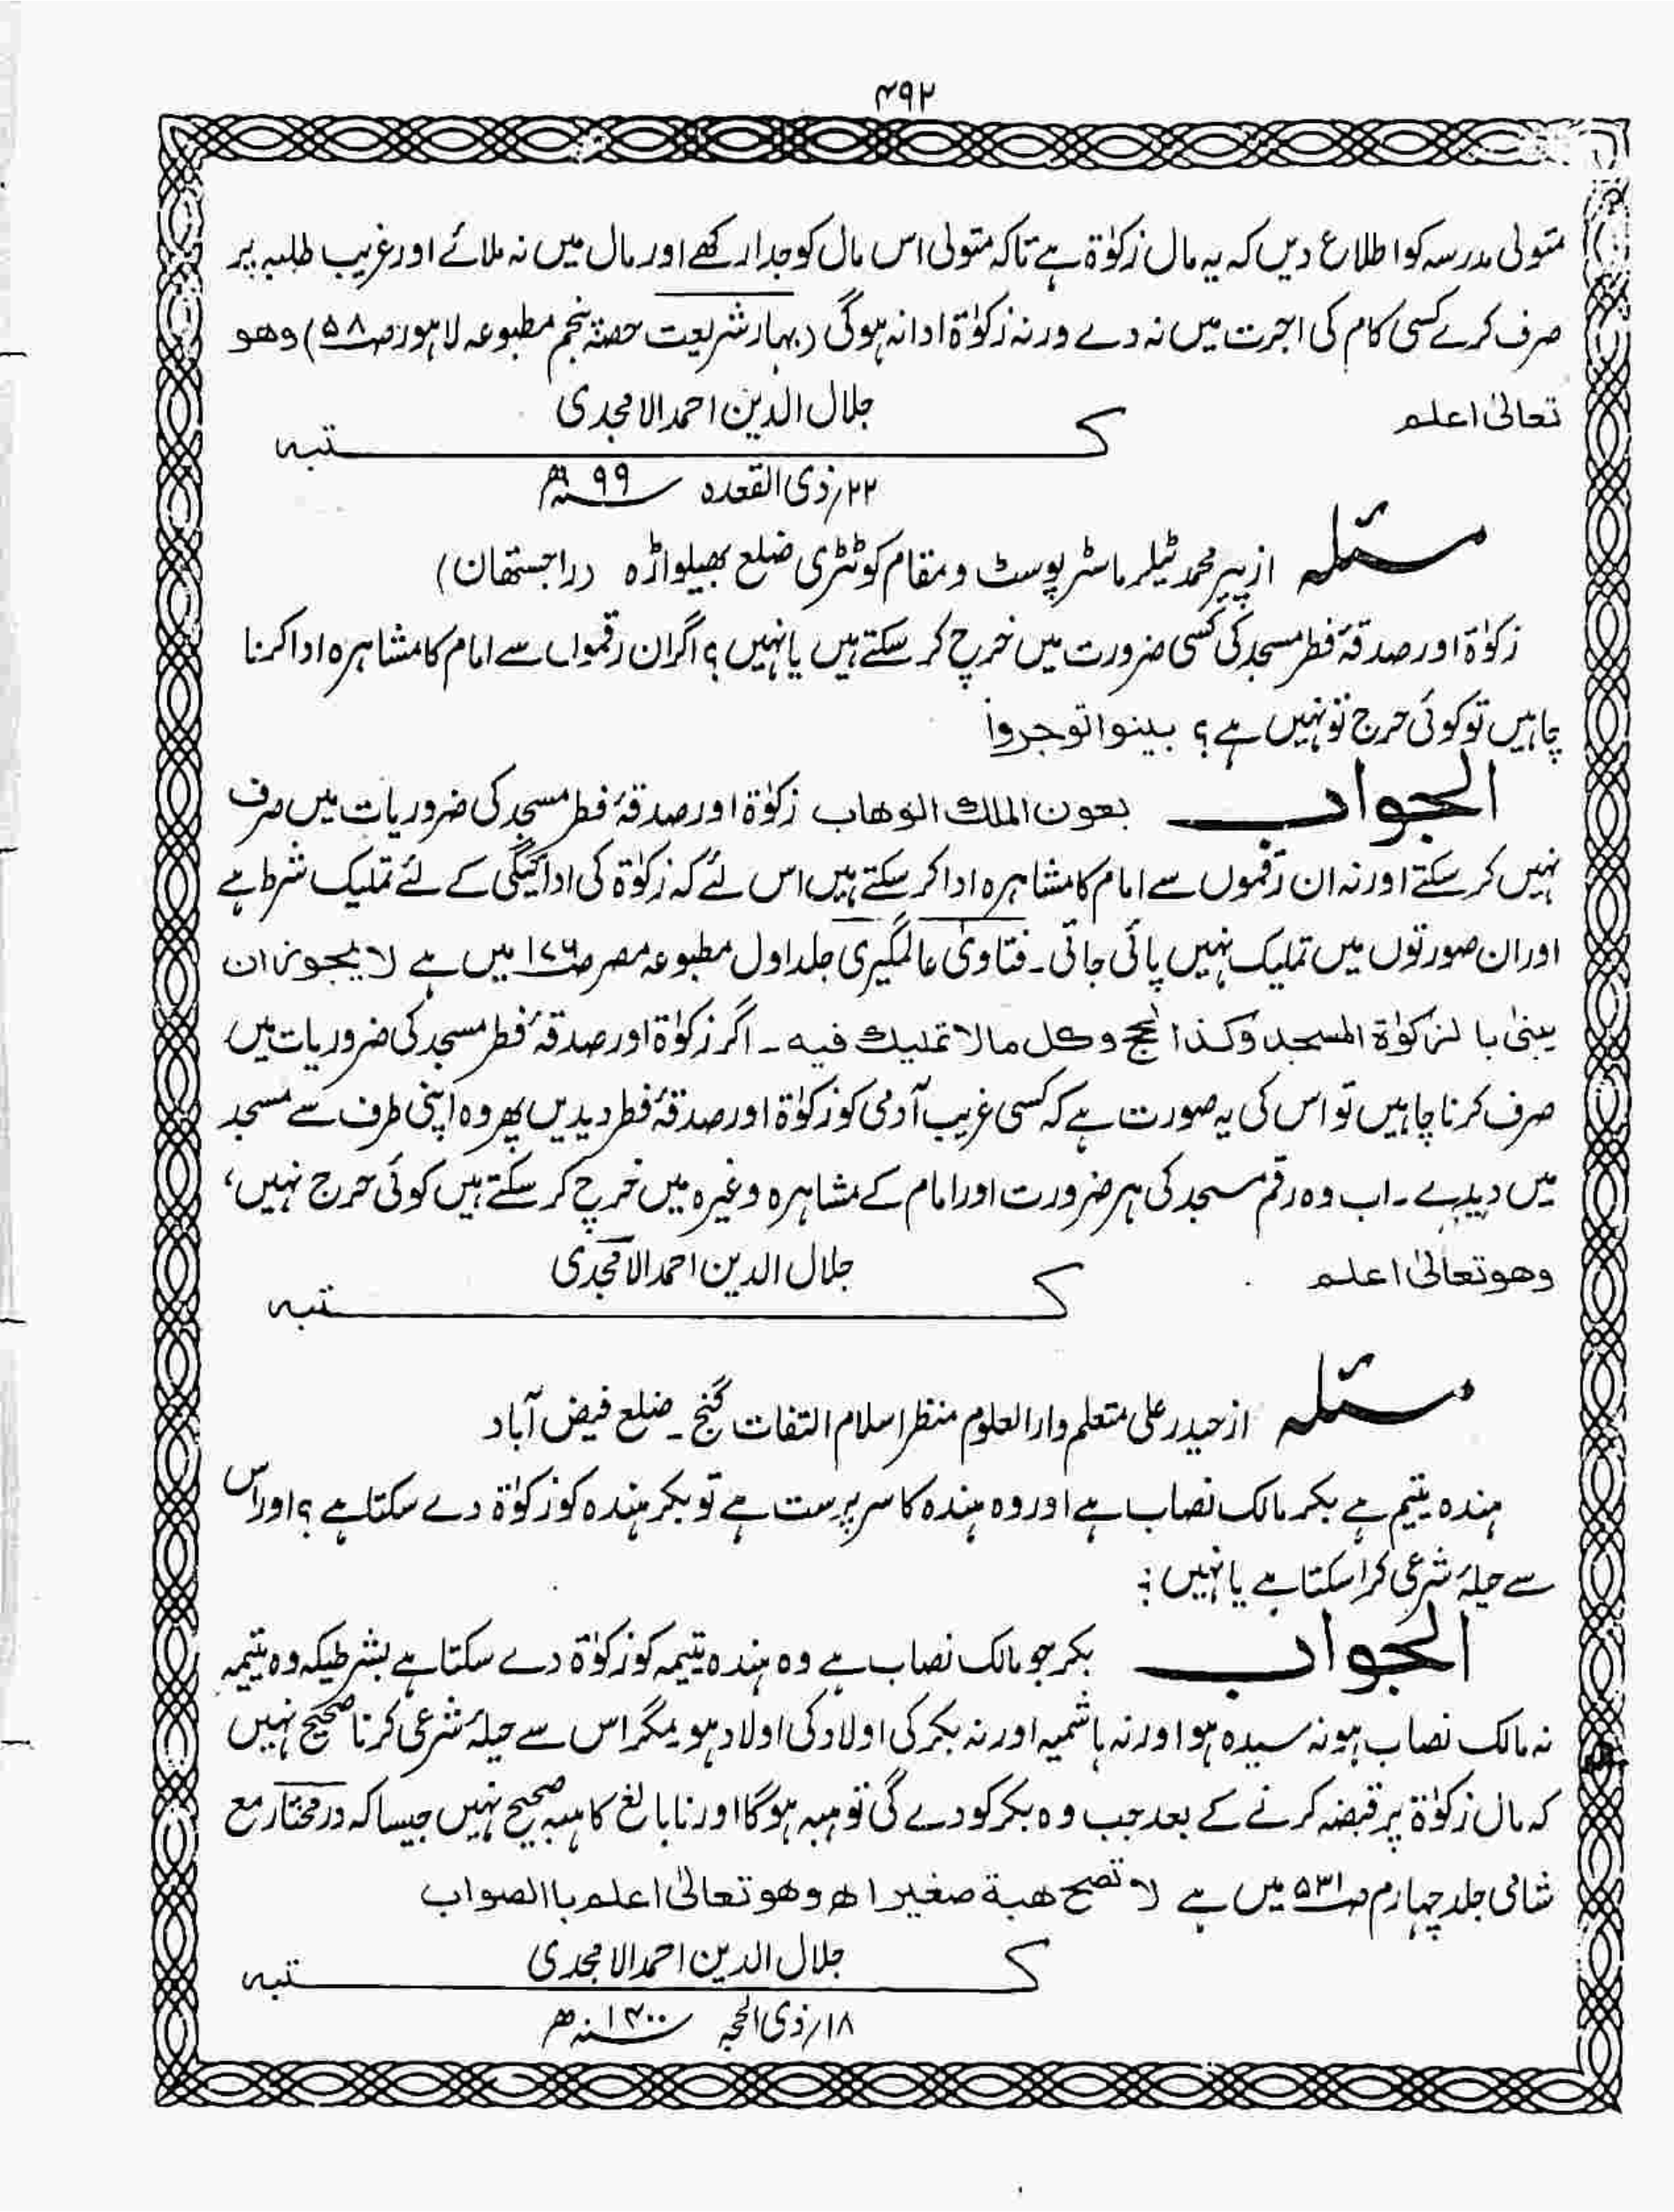 ۴۹۲
متولی مدرسہ کو اطلاع دیں کہ یہ مال زکوٰۃ ہے تاکہ متولی اس مال کو جدا رکھے اور مال میں نہ ملائے اور غریب طلبہ پر
صرف کرے کسی کام کی اجرت میں نہ دے ورنہ زکوٰۃ ادا نہ ہوگی (بہار شریعت حصۂ پنجم مطبوعہ لاہور ص۵۸) وھو
تعالیٰ اعلم
جلال الدین احمد الامجدی
کتبہ
۲۲؍ذی القعدہ ۹۹ھ
مسئلہ از پیر محمد ٹیلر ماسٹر پوسٹ و مقام کوٹڑی ضلع بھیلواڑہ (راجستھان)
زکوٰۃ اور صدقۂ فطر مسجد کی کسی ضرورت میں خرچ کر سکتے ہیں یا نہیں؟ اگر ان رقموں سے امام کا مشاہرہ ادا کرنا
چاہیں تو کوئی حرج تو نہیں ہے؟ بینوا توجروا
الجواب بعون الملك الوهاب زکوٰۃ اور صدقۂ فطر مسجد کی ضروریات میں صرف
نہیں کر سکتے اور نہ ان رقموں سے امام کا مشاہرہ ادا کر سکتے ہیں اس لئے کہ زکوٰۃ کی ادائیگی کے لئے تملیک شرط ہے
اور ان صورتوں میں تملیک نہیں پائی جاتی۔ فتاویٰ عالمگیری جلد اول مطبوعہ مصر ص۱۷۶ میں ہے لا یجوز ان
یبنیٰ بالزکوٰۃ المسجد وکذا الحج وکل مالا تملیك فیه۔ اگر زکوٰۃ اور صدقۂ فطر مسجد کی ضروریات میں
صرف کرنا چاہیں تو اس کی یہ صورت ہے کہ کسی غریب آدمی کو زکوٰۃ اور صدقۂ فطر دیدیں پھر وہ اپنی طرف سے مسجد
میں دیدے۔ اب وہ رقم مسجد کی ہر ضرورت اور امام کے مشاہرہ وغیرہ میں خرچ کر سکتے ہیں کوئی حرج نہیں،
وھو تعالیٰ اعلم
جلال الدین احمد الامجدی
کتبہ
مسئلہ از حیدر علی متعلم دارالعلوم منظر اسلام التفات گنج۔ ضلع فیض آباد
ہندہ یتیم ہے بکر مالک نصاب ہے اور وہ ہندہ کا سرپرست ہے تو بکر ہندہ کو زکوٰۃ دے سکتا ہے؟ اور اس
سے حیلۂ شرعی کرا سکتا ہے یا نہیں؟
الجواب بکر جو مالک نصاب ہے وہ ہندہ یتیمہ کو زکوٰۃ دے سکتا ہے بشرطیکہ وہ یتیمہ
نہ مالک نصاب ہو نہ سیدہ ہو اور نہ ہاشمیہ اور نہ بکر کی اولاد کی اولاد ہو۔ مگر اس سے حیلۂ شرعی کرنا صحیح نہیں
کہ مال زکوٰۃ پر قبضہ کرنے کے بعد جب وہ بکر کو دے گی تو ہبہ ہوگا اور نابالغ کا ہبہ صحیح نہیں جیسا کہ درمختار مع
شامی جلد چہارم ص۵۳۱ میں ہے لا تصح ھبة صغیر اھ وھو تعالیٰ اعلم باالصواب
جلال الدین احمد الامجدی
کتبہ
۱۸؍ذی الحجہ ۱۴۰۰ھ